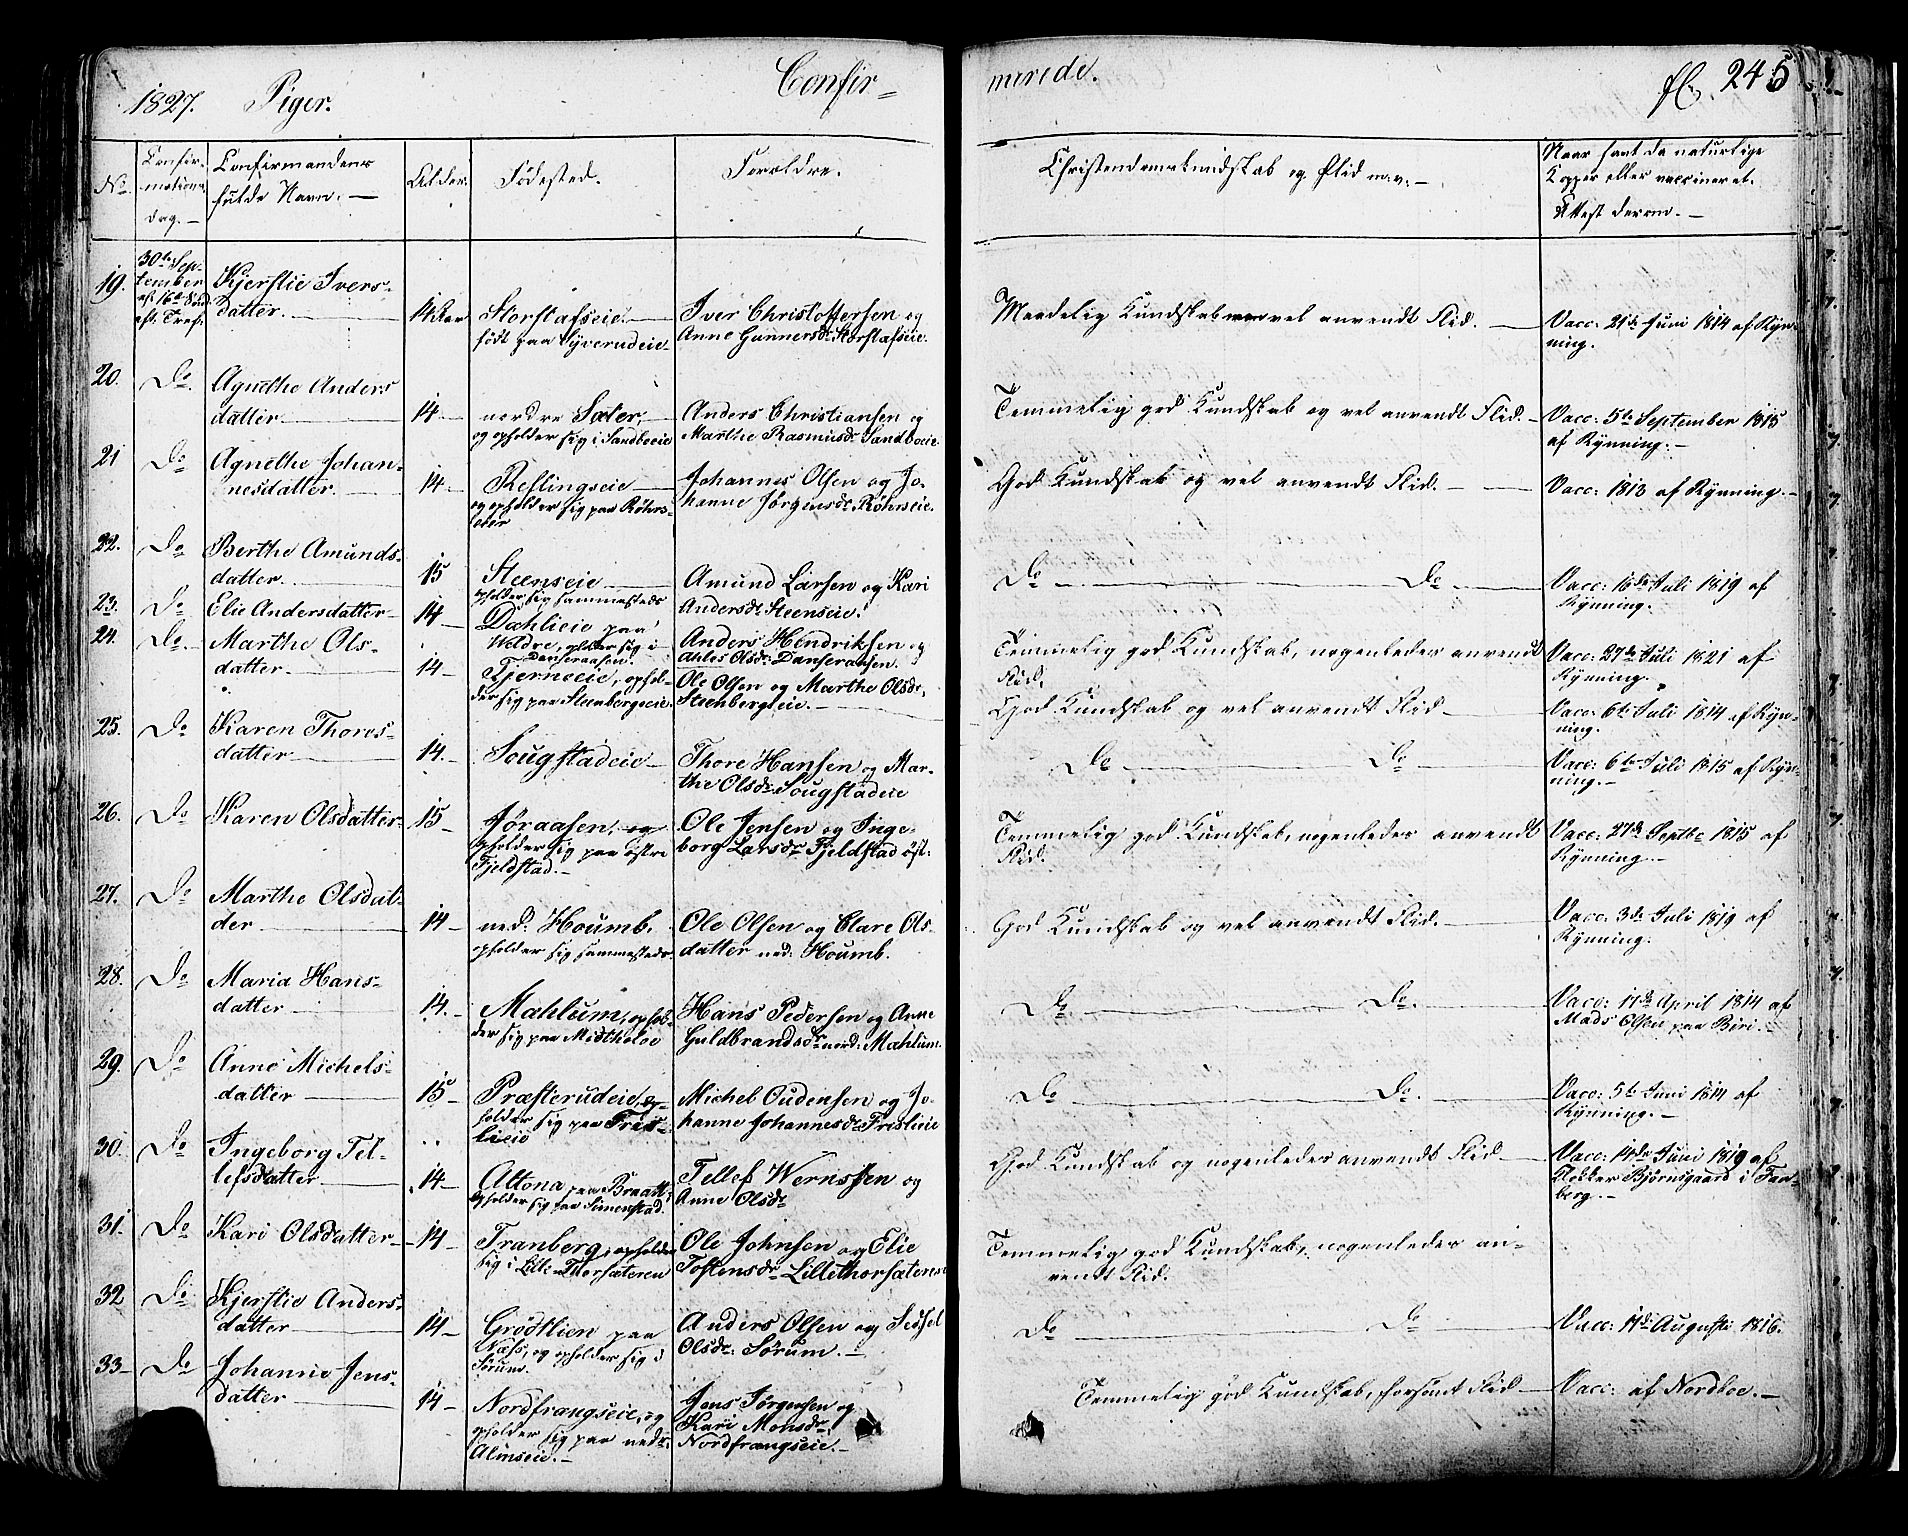 1827. Piger. Confir=
merede. fl. 245
No.
Confir-
mations
dag.
Confirmandens
fulde Navn.
Alder.
Fødested.
Forældre.
Christendomskundskab og Flid m.v.
Naar havt de naturlige
Kopper eller vaccineret.
Attest derom.
19.
30te Sep-
tember
16de Sønd:
eft. Tref:
Kjerstie Ivers-
datter.
14
Storstafseie.
født paa Lyverudeie
Iver Christoffersen og
Anne Gunnersdr Storstafseie.
Maadelig Kundskab vel anvendt Flid.
Vacc: 21de Juni 1814 af Ryn-
ning.
20.
Do
Agnethe Anders
datter
14
nordre Sæter,
og opholder sig i Sandboeie
Anders Christiansen og
Marthe Rasmusdr Sandboeie
Temmelig god Kundskab og vel anvendt Flid.
Vacc: 5te September 1815
af Rynning.
21
Do
Agnethe Johan-
nesdatter.
14
Reslingseie
og opholder sig paa Röhrs-
eier
Johannes Olsen og Jo-
hanne Jørgensdr Röhrseie.
God Kundskab og vel anvendt Flid.
Vacc: 1813 af Rynning.
22.
Do
Berthe Amunds-
datter.
15
Steenseie
opholder sig sammesteds
Amund Larsen og Kari
Andersdr Steenseie.
Do Do
Vacc: 16de Juli 1819 af
Rynning.
23.
Do
Elie Andersdatter
14
Dahlieie paa
Weldre, opholder sig i
Danseraasen.
Anders Hendriksen og
Ahles Olsdr Danseraasen.
Temmelig god Kundskab, nogenledes anvendt
Flid.
Vacc: 27de Juli 1821 af
Rynning.
24.
Do
Marthe Ols-
datter
14
Kjerneeie, ophol-
der sig paa Steenbergseie.
Ole Olsen og Marthe Olsdr
Steenbergseie.
God Kundskab og vel anvendt Flid
Vacc: 6te Juli 1814 af Ryn-
ning.
25.
Do
Karen Thores-
datter
14.
Sougstadeie
Thore Hansen og Mar-
the Olsdr Sougstadeie
Do Do
Vacc: 6te Juli 1815 af Ryn-
ning.
26.
Do
Karen Olsdatter
15
Jøraasen, og
opholder sig paa østre
Fjeldstad.
Ole Jensen og Inge-
borg Larsdr Fjeldstad öst:
Temmelig god Kundskab, nogenledes anvendt
Flid.
Vacc: 27de Septbr 1815 af
Rynning.
27.
Do
Marthe Olsdat-
der
14
ned: Houmb.
opholder sig sammesteds.
Ole Olsen og Clare Ols-
datter ned: Houmb.
God Kundskab og vel anvendt Flid.
Vacc: 3de Juli 1819 af
Rynning.
28.
Do
Maria Hans-
datter
14.
Mæhlum, ophol-
der sig paa Midtheloe
Hans Pedersen og Anne
Guldbrandsdr nord: Mæhlum.
Do Do.
Vacc: 17de April 1814 af
Mads Olsen paa Biri.
29.
Do
Anne Michels-
datter
15
Præsterudeie, op-
holder sig paa Fris-
lieie
Michel Oudensen og Jo-
hanne Johannesdr Frislieie
Do Do.
Vacc: 5te Juni 1814 af
Rynning.
30.
Do
Ingeborg Tel-
lefsdatter
14
Altona paa Braatt,
opholder sig paa Simenstad.
Tellef Wernssen og
Anne Olsdr
God Kundskab og nogenledes anvendt Flid
Vacc: 14de Juni 1819 af
Klokker Bjørnsgaard i Faa-
berg.
31.
Do
Kari Olsdatter
14
Tranberg, opholder
sig i Lille Thorsæteren
Ole Johnsen og Elie
Tostensdr Lillethorsæteren
Temmelig god Kundskab, nogenledes an-
vendt Flid.
32
Do
Kjerstie Anders-
datter
14
Grødtlien paa
Næss, og opholder sig i
Sørum.
Anders Olsen og Sidsel
Olsdr: Sørum.
Do Do
Vacc: 11de Augusti 1816.
33
Do
Johanne Jens-
datter
14
Nordfrangseie, og
opholder sig paa nedr
Almseie.
Jens Jørgensen og
Kari Monsdr
Nordfrangseie.
Temmelig god Kundskab, forsømt Flid
Vacc: af Nordboe.